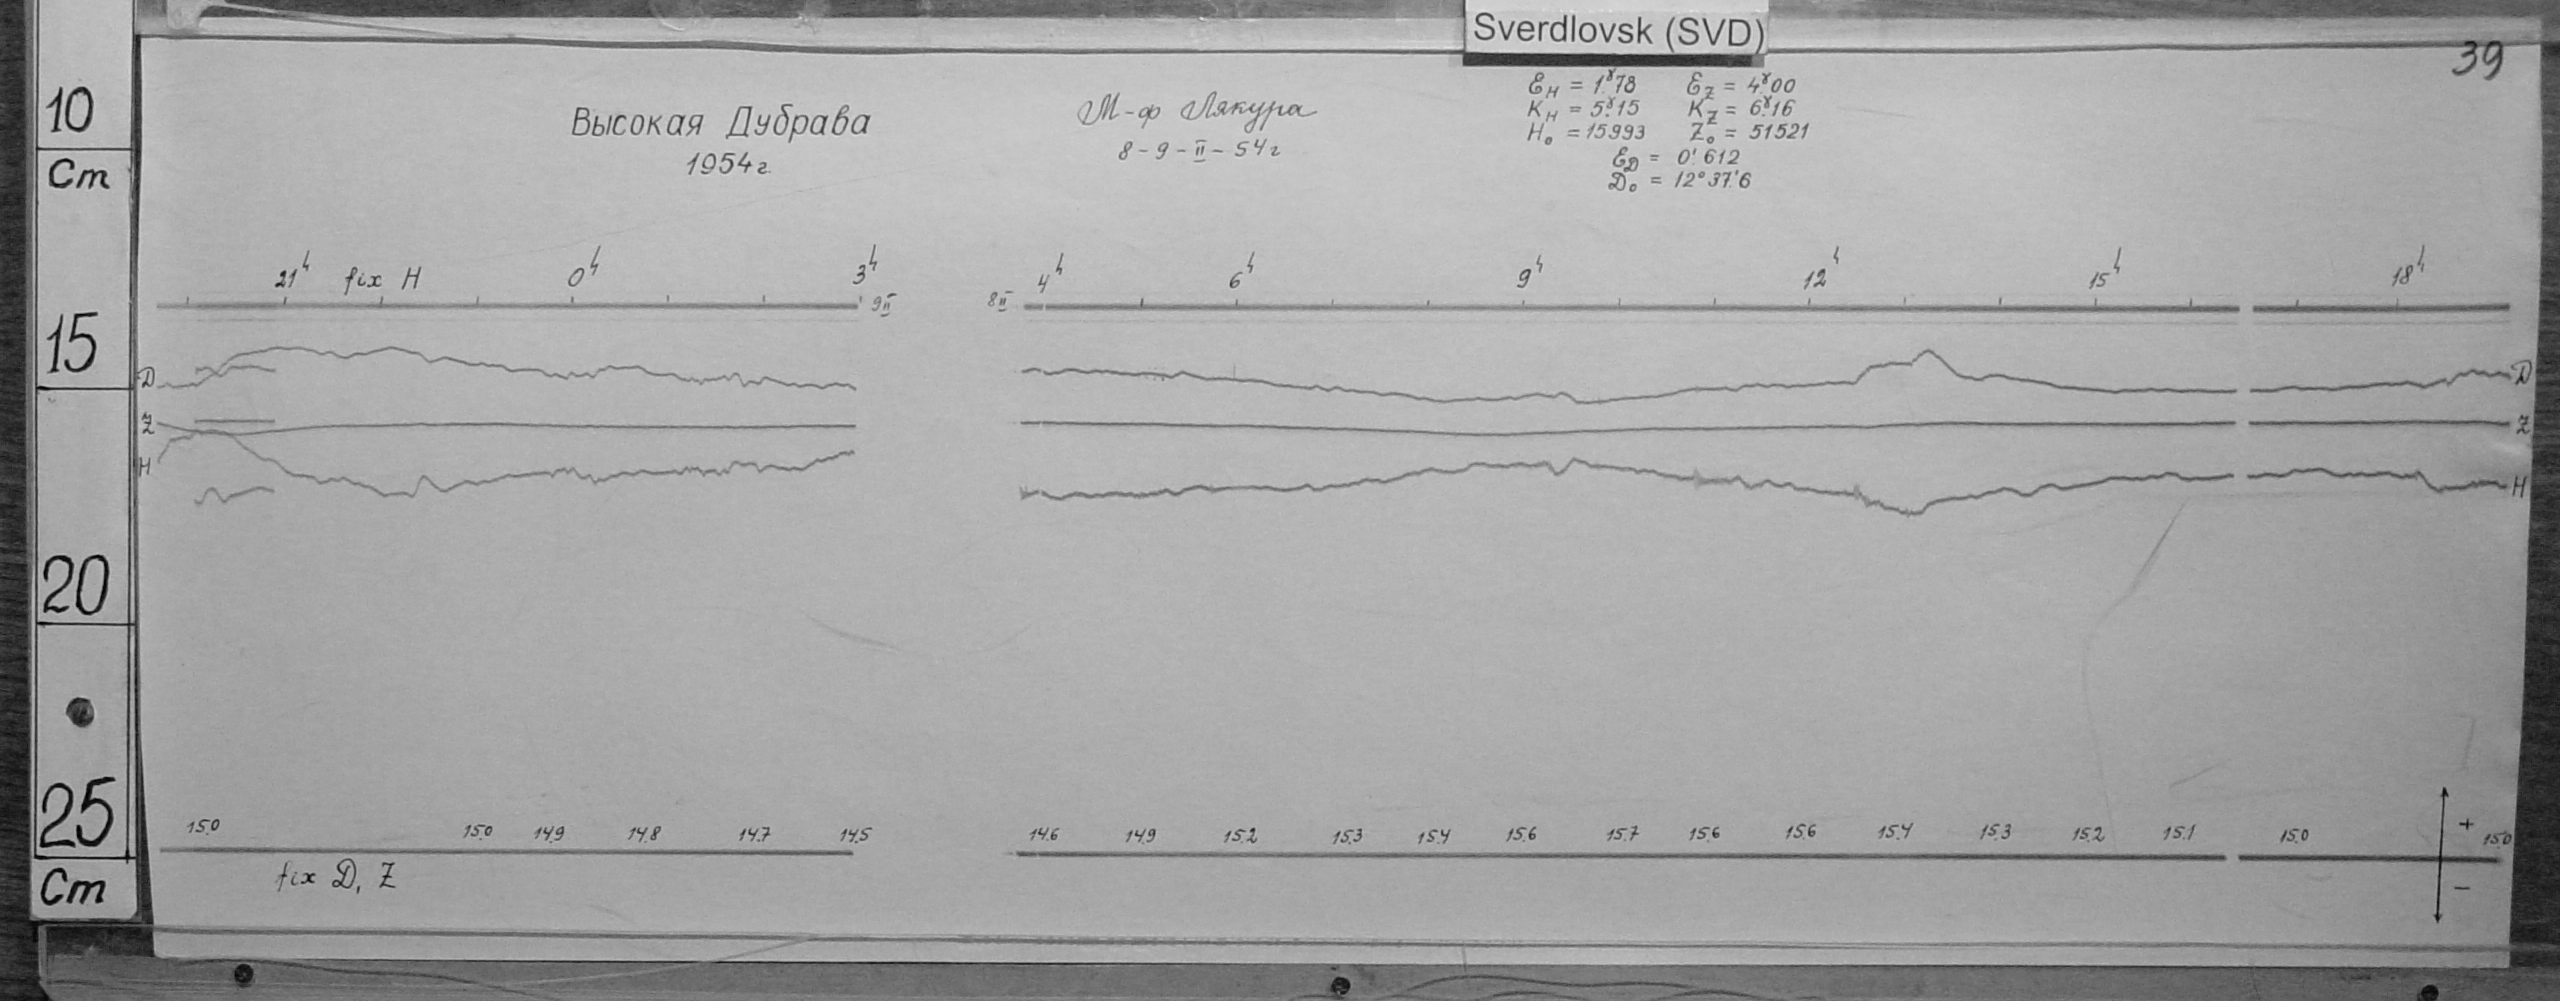 Sverdlovsk (SVD)
39
10
Cm
15
20
25
Cm
Высокая Дубрава
1954г.
М-ф Лякура
8-9-II-54г
ℰH = 1.ᵞ78 ℰZ = 4.ᵞ00
KH = 5.ᵞ15 KZ = 6.ᵞ16
H₀ = 15993 Z₀ = 51521
ℰD = 0.'612
D₀ = 12°37.'6
21ʰ fix H 0ʰ 3ʰ 4ʰ 6ʰ 9ʰ 12ʰ 15ʰ 18ʰ
9II 8II
D D
Z Z
H H
15.0 15.0 14.9 14.8 14.7 14.5 14.6 14.9 15.2 15.3 15.4 15.6 15.7 15.6 15.6 15.4 15.3 15.2 15.1 15.0 15.0
+
fix D, Z
−